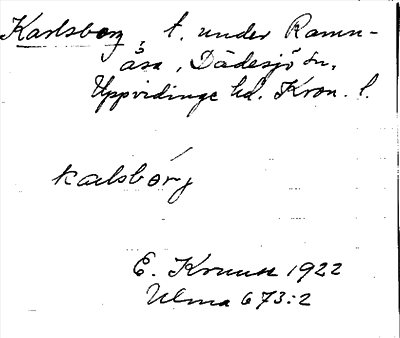 Karlsborg, t. under Ramn-
åsa, Dädesjö sn,
Uppvidinge hd. Kron. l.
karlsbórg
E. Kruuse 1922
Ulma 673:2